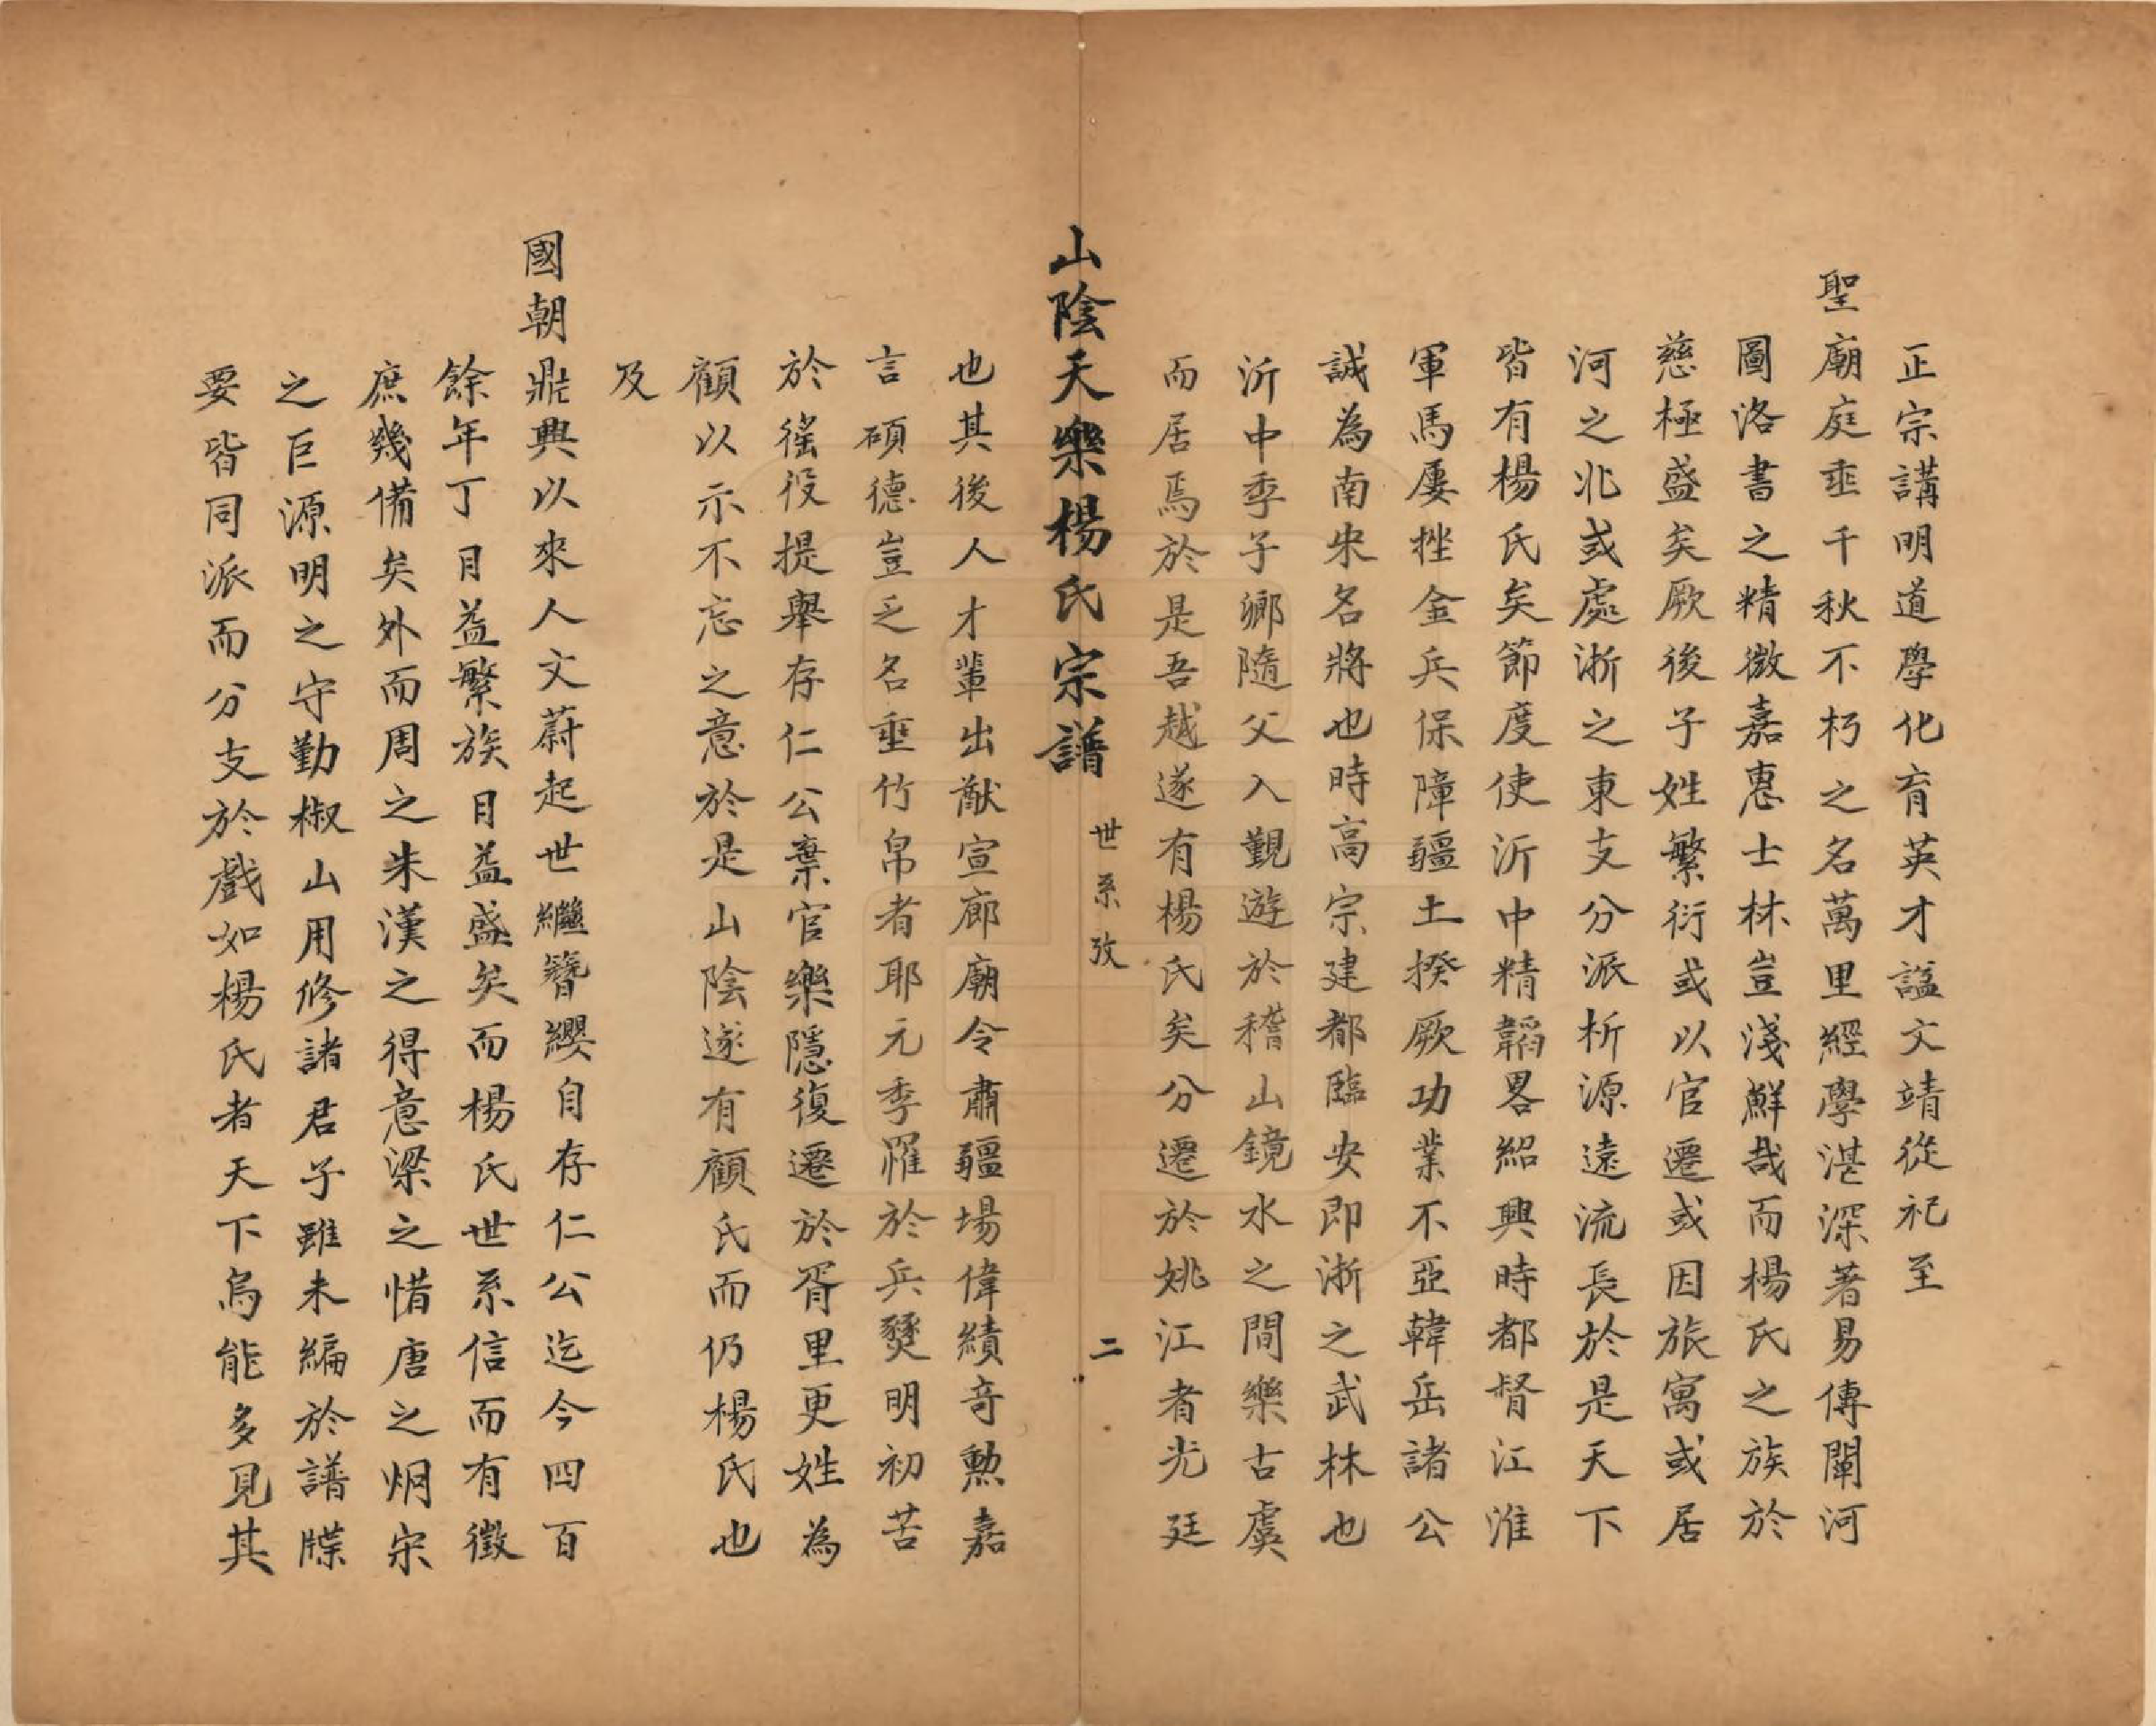 正宗講明道學化育英才諡文靖從祀至
聖廟庭垂千秋不朽之名萬里經學湛深著易傳闡河
圖洛書之精微嘉惠士林豈淺鮮哉而楊氏之族於
慈極盛矣厥後子姓繁衍或以官遷或因旅寓或居
河之北或處浙之東支分派析源遠流長於是天下
皆有楊氏矣節度使沂中精韜畧紹興時都督江淮
軍馬屢挫金兵保障疆土揆厥功業不亞韓岳諸公
誠為南宋名將也時高宗建都臨安即浙之武林也
沂中季子鄉隨父入覲遊於稽山鏡水之間樂古虞
而居焉於是吾越遂有楊氏矣分遷於姚江者光廷
山陰天樂楊氏宗譜 世系攷 二
也其後人才輩出猷宣廊廟令肅疆場偉績竒勲嘉
言碩德豈乏名垂竹帛者耶元季罹於兵燹明初苦
於徭役提舉存仁公棄官樂隱復遷於胥里更姓為
顧以示不忘之意於是山陰遂有顧氏而仍楊氏也
及
國朝鼎興以來人文蔚起世繼簪纓自存仁公迄今四百
餘年丁目益繁族目益盛矣而楊氏世系信而有徵
庶幾備矣外而周之朱漢之得意梁之惜唐之烱宋
之巨源明之守勤椒山用修諸君子雖未編於譜牒
要皆同派而分支於戲如楊氏者天下烏能多見其